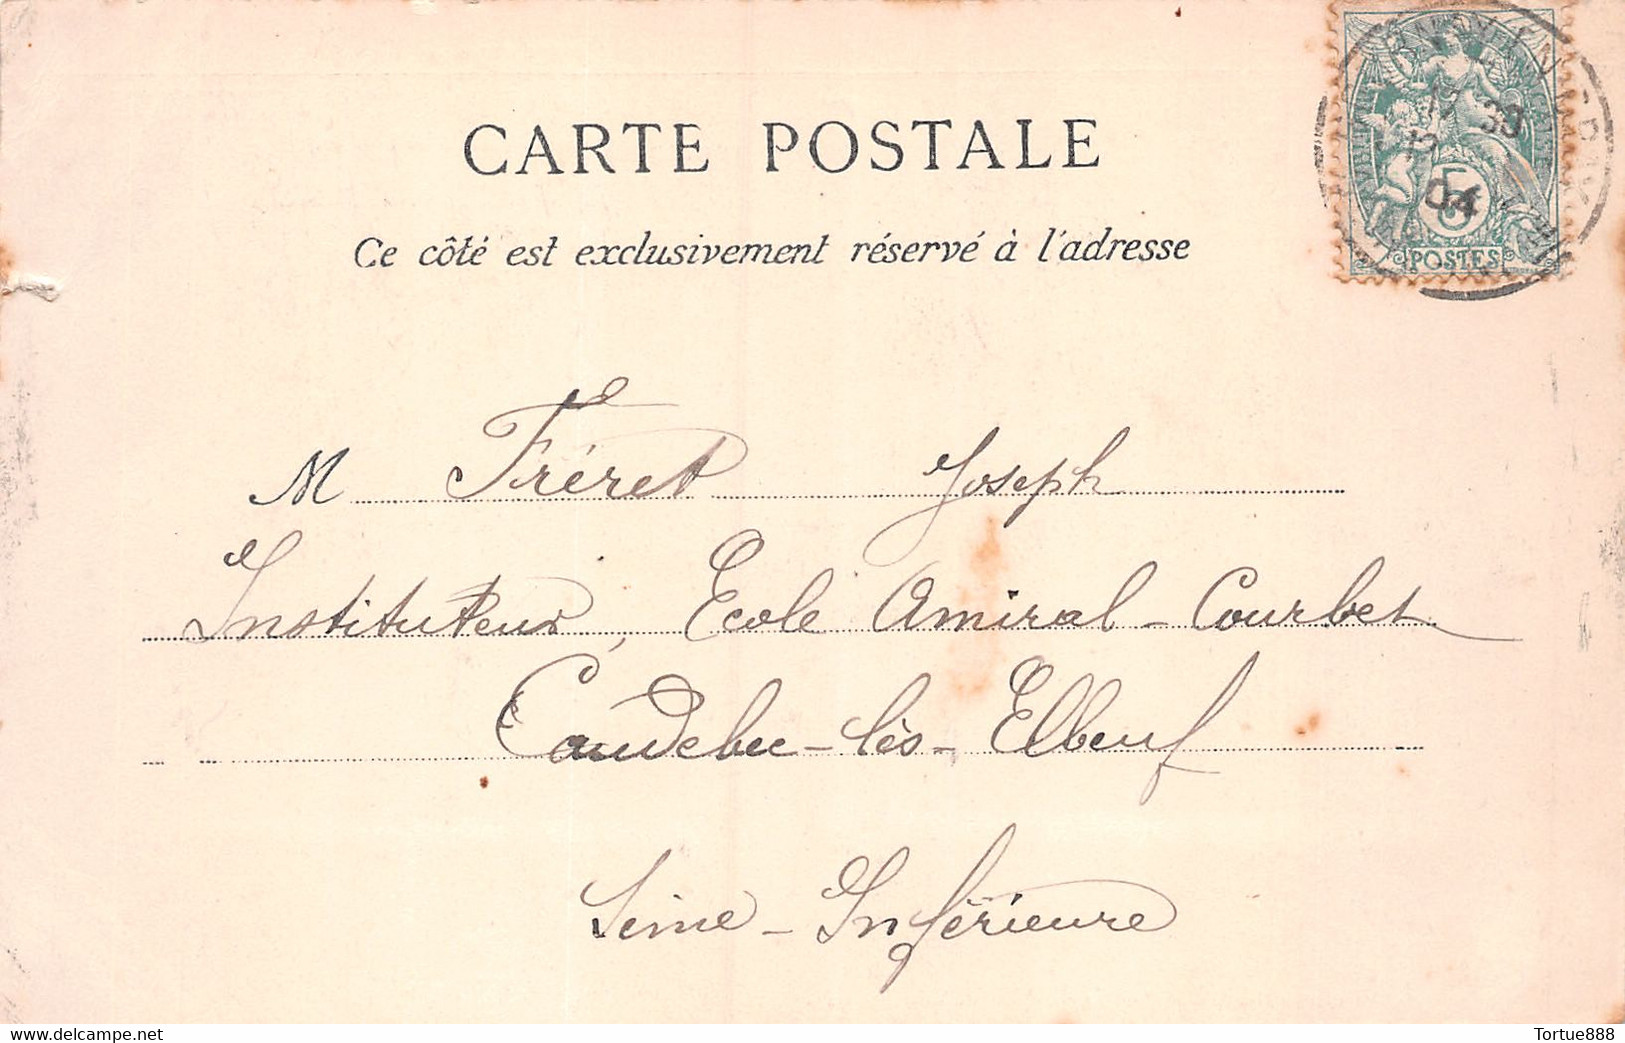 CARTE POSTALE
Ce côté est exclusivement réservé à l'adresse
5
POSTES
04
M Fréret Joseph
Instituteur, Ecole Amiral-Courbet
Caudebec-lès-Elbeuf
Seine-Inférieure
www.delcampe.net
Tortue888